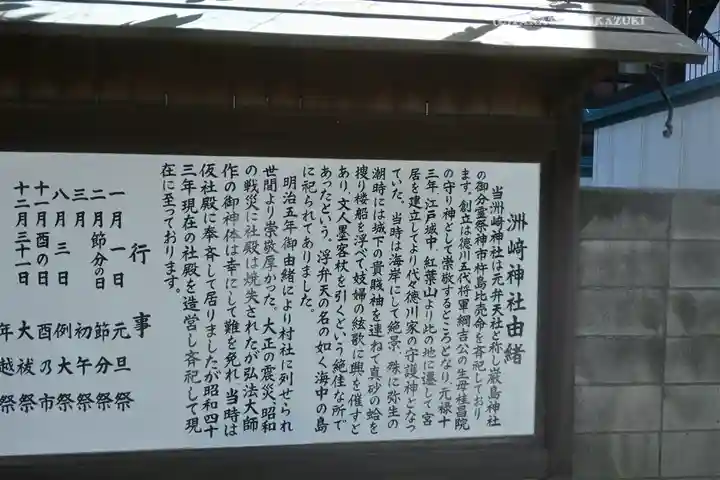 洲崎神社由緒
当洲崎神社は元弁天社と称し厳島神社
の御分霊祭神市杵島比売命を斉祀しており
ます。創立は徳川五代将軍綱吉公の生母桂昌院
の守り神として崇敬するところとなり元禄十
三年、江戸城中 紅葉山より此の地に遷して宮
居を建立してより代々徳川家の守護神となっ
ていた。当時は海岸にして絶景、殊に弥生の
潮時には城下の貴賎袖を連ねて真砂の蛤を
捜り楼船を浮べて妓婦の絃歌に興を催すと
あり、文人墨客杖を引くという絶佳な所で
あったという。浮弁天の名の如く海中の島
に祀られてありました。
明治五年御由緒により村社に列せられ
世間より崇敬厚かった。大正の震災、昭和
の戦災に社殿は焼失されたが弘法大師
作の御神体は幸にして難を免れ、当時は
仮社殿に奉斉して居りましたが昭和四十
三年現在の社殿を造営し斉祀して現
在に至っております。
行事
一月一日 元旦祭
二月節分の日 節分祭
三月 初午祭
八月三日 例大祭
十一月酉の日 酉乃市
十二月三十一日 大祓祭
年越祭
KAZUKI